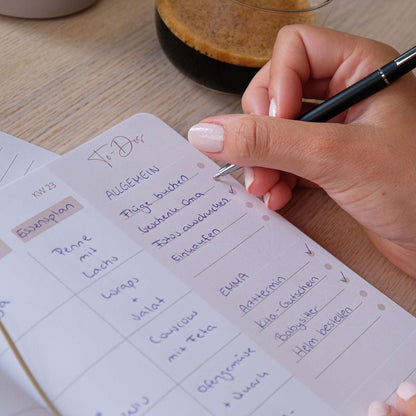 To-Dos
KW 23
Essensplan
Penne
mit
Lachs
Wraps
+
Salat
Couscous
mit Feta
Ofengemüse
+ Quark
ALLGEMEIN
Flüge buchen
Geschenk Oma
Fotos ausdrucken
Einkaufen
EMMA
Arzttermin
Kita-Gutschein
Babysitter
Helm bestellen